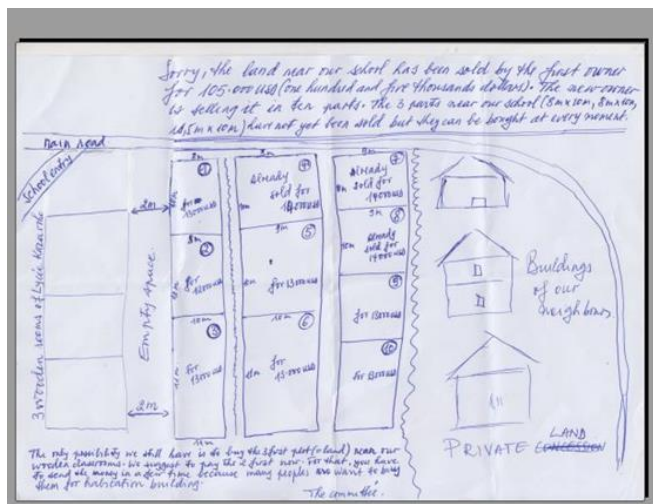 Sorry, the land near our school has been sold by the first owner
for 105.000 USD (one hundred and five thousands dollars). The new owner
is selling it in ten parts. The 3 parts near our school (8m x 10m, 8m x 10m,
x 10m) have not yet been sold but they can be bought at every moment.
Main road
School entry
3 Wooden rooms of Lycée
2m
Empty space
2m
8m
1
for
8m
2
for
12000 USD
10m
3
for
13000 USD
11m
4
Already
sold for
9m
5
for 13000 USD
10m
6
for
13.000 USD
7
Already
sold for
14000 USD
9m
8
Already
sold for
14000 USD
9
for 13000 USD
10
for 13000 USD
Buildings
of our
neighbors
PRIVATE LAND
CONCESSION
The only possibility we still have is to buy the 3 first part (of land) near our
wooden classrooms. We suggest to pay the 2 first now. For that, you have
to send the money in a few time because many peoples want to buy
them for habitation building.
The committee.